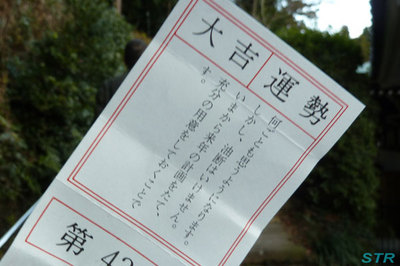 運勢
大吉
何ごとも思うようになります。
しかし、油断はいけません。
いまから来年の計画をたて、
充分の用意をしておくことで
す。
第 42
STR